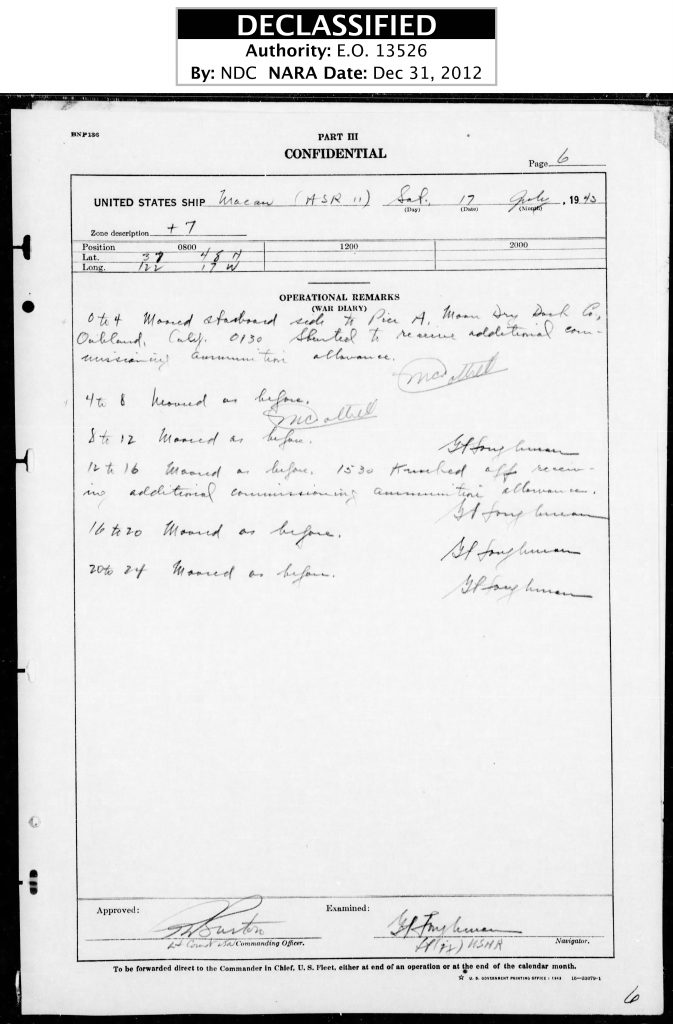 DECLASSIFIED
Authority: E.O. 13526
By: NDC NARA Date: Dec 31, 2012
BNP136
PART III
CONFIDENTIAL
Page 6
UNITED STATES SHIP Macaw (ASR 11) Sat. 17 July, 1943
(Day) (Date) (Month)
Zone description + 7
Position 0800 1200 2000
Lat. 37 48 N
Long. 122 17 W
OPERATIONAL REMARKS
(WAR DIARY)
0 to 4 Moored starboard side to Pier A, Moore Dry Dock Co,
Oakland, Calif. 0130 Started to receive additional com-
missioning ammunition allowance.
4 to 8 Moored as before.
8 to 12 Moored as before.
12 to 16 Moored as before. 1530 Finished off receiv-
ing additional commissioning ammunition allowance.
16 to 20 Moored as before.
20 to 24 Moored as before.
Approved: Examined:
Burton
Lt Comdr USN Commanding Officer. Lt(jg) USNR Navigator.
To be forwarded direct to the Commander in Chief, U. S. Fleet, either at end of an operation or at the end of the calendar month.
U. S. GOVERNMENT PRINTING OFFICE : 1943 16—33079-1
6